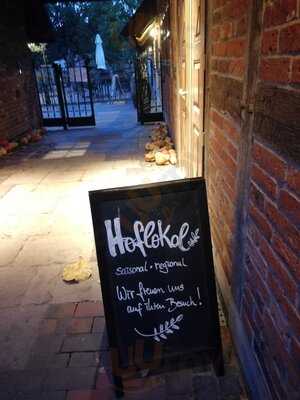 Hoflokal
saisonal • regional
Wir freuen uns
auf ihren Besuch!